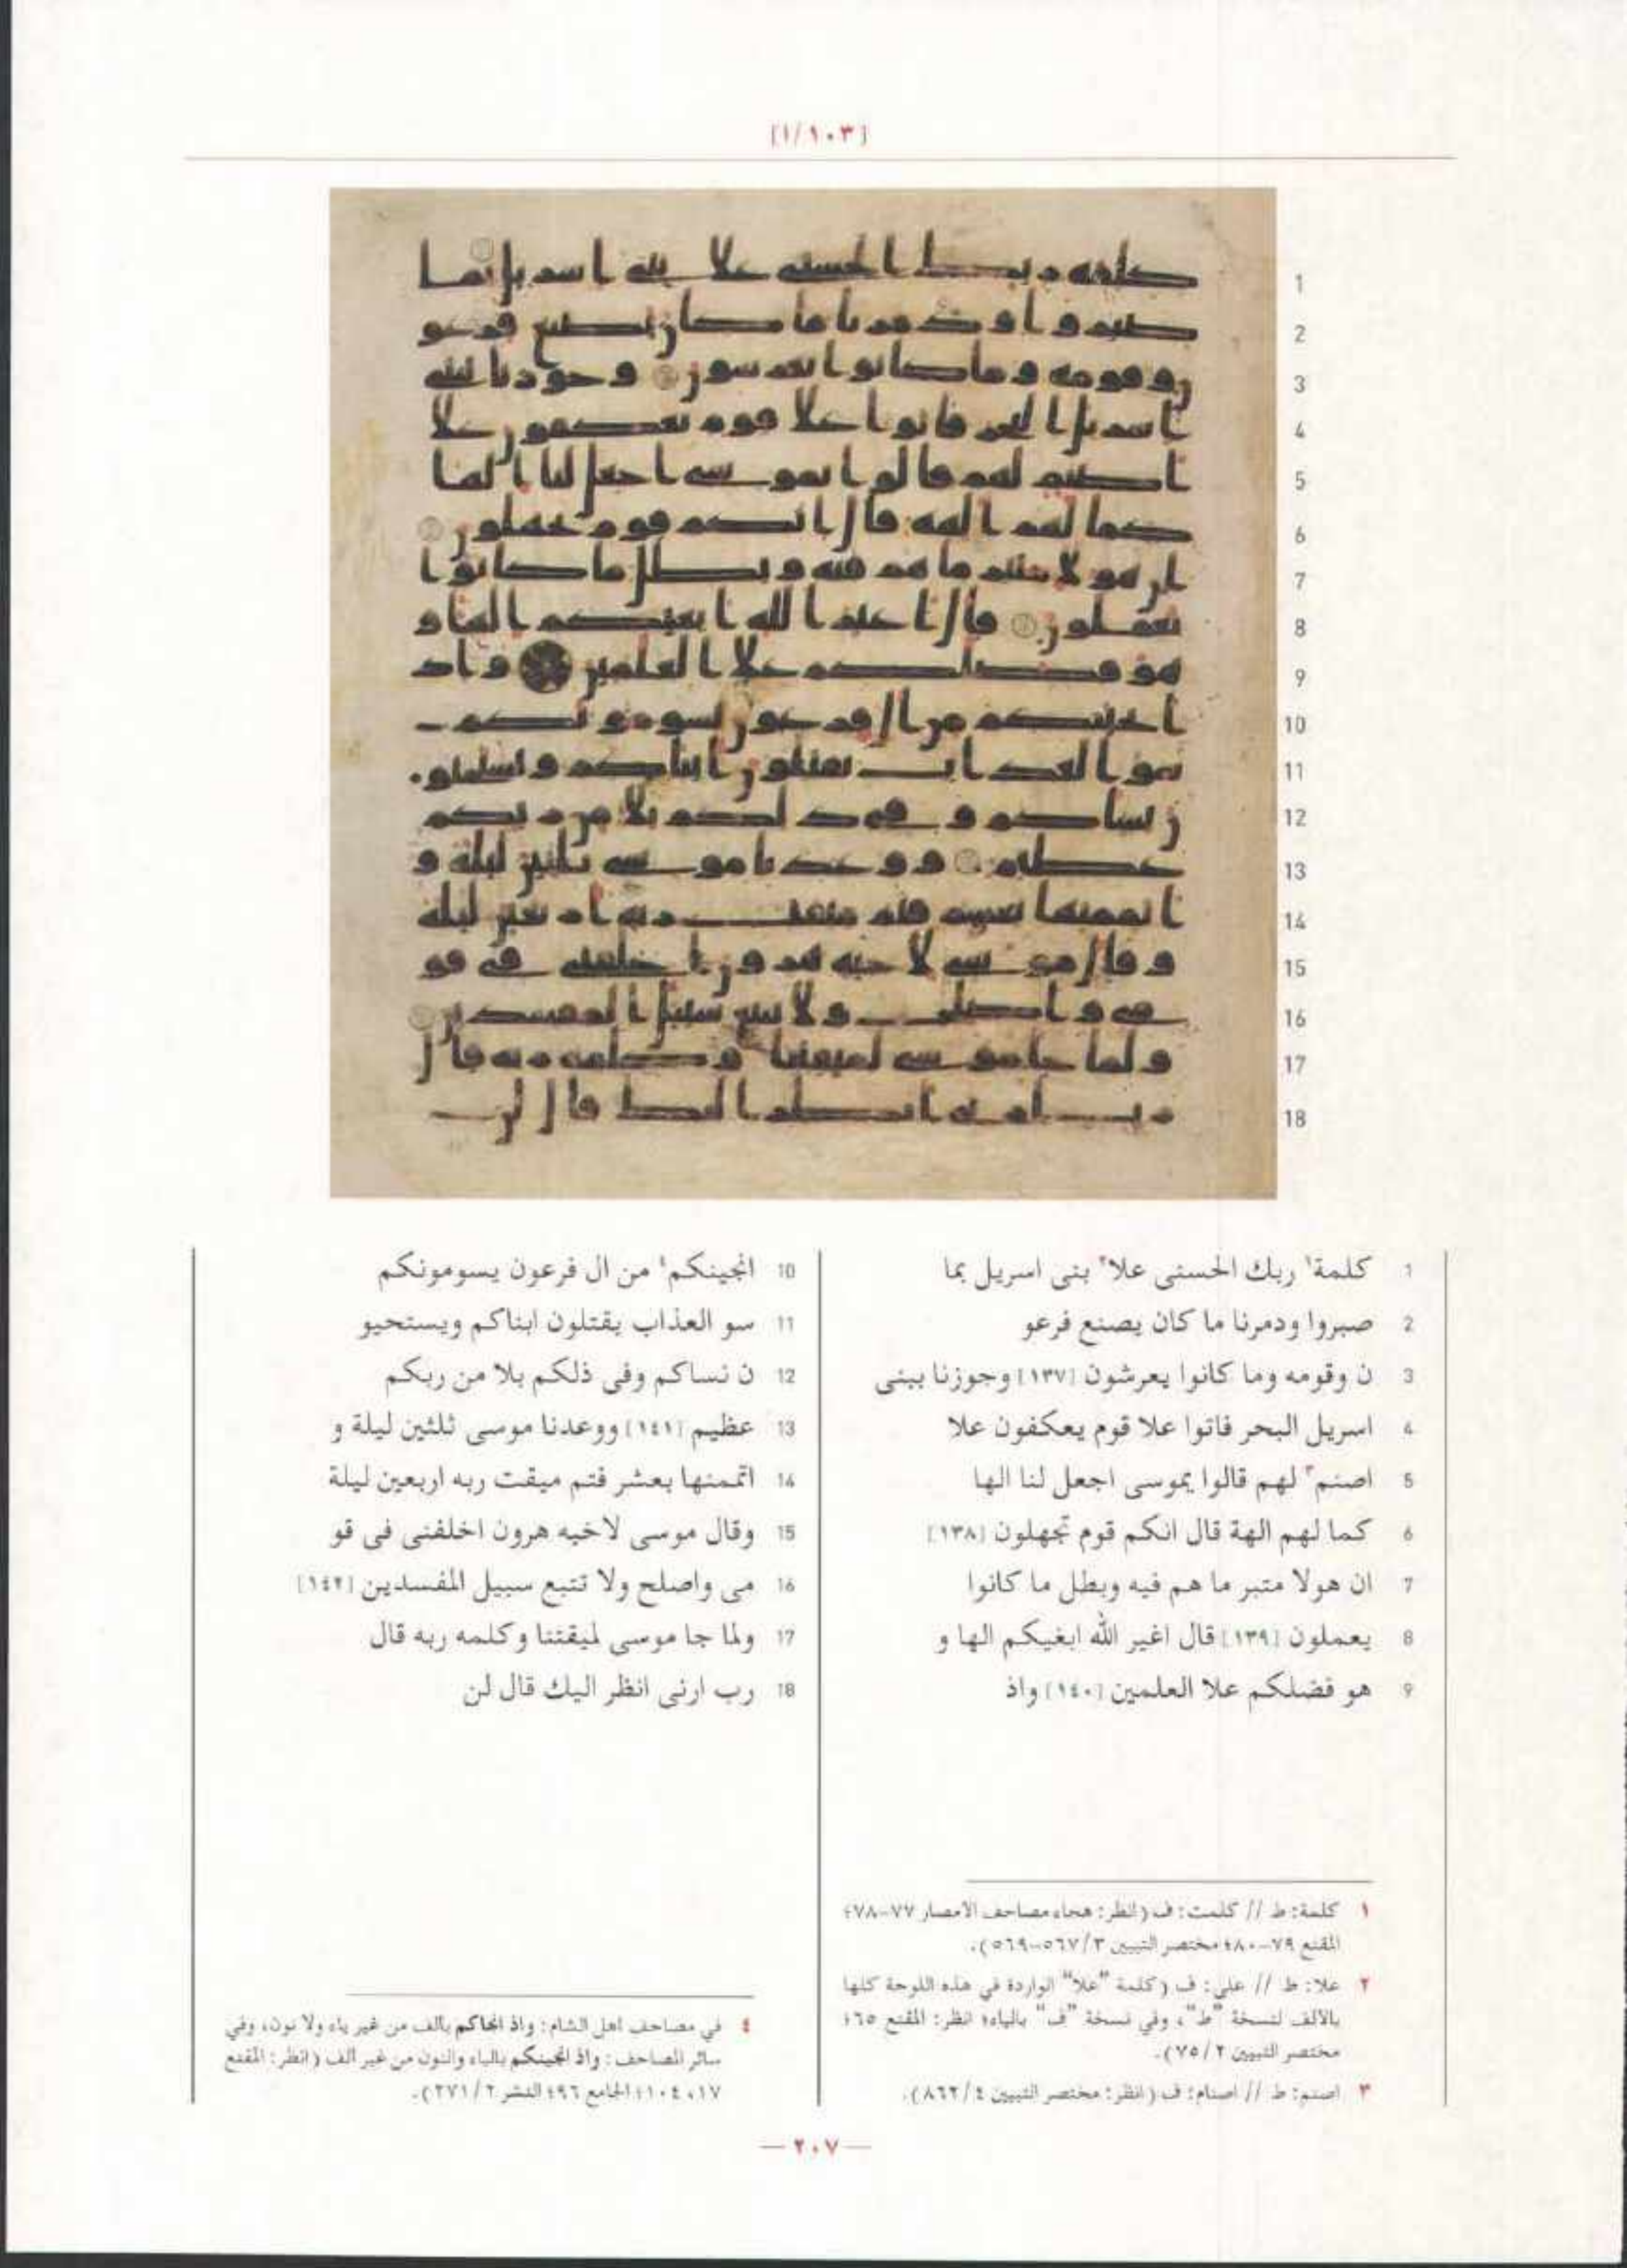 [١/١٠٣]
1 كلمة١ ربك الحسنى علا٢ بنى اسريل بما
2 صبروا ودمرنا ما كان يصنع فرعو
3 ن وقومه وما كانوا يعرشون [١٣٧] وجوزنا ببنى
4 اسريل البحر فاتوا علا قوم يعكفون علا
5 اصنم٣ لهم قالوا يموسى اجعل لنا الها
6 كما لهم الهة قال انكم قوم تجهلون [١٣٨]
7 ان هولا متبر ما هم فيه وبطل ما كانوا
8 يعملون [١٣٩] قال اغير الله ابغيكم الها و
9 هو فضلكم علا العلمين [١٤٠] واذ
10 انجينكم٤ من ال فرعون يسومونكم
11 سو العذاب يقتلون ابناكم ويستحيو
12 ن نساكم وفى ذلكم بلا من ربكم
13 عظيم [١٤١] ووعدنا موسى ثلثين ليلة و
14 اتممنها بعشر فتم ميقت ربه اربعين ليلة
15 وقال موسى لاخيه هرون اخلفنى فى قو
16 مى واصلح ولا تتبع سبيل المفسدين [١٤٢]
17 ولما جا موسى لميقتنا وكلمه ربه قال
18 رب ارنى انظر اليك قال لن
١ كلمة: ط // كلمت: ف (انظر: هجاء مصاحف الأمصار ٧٧-٧٨؛
المقنع ٧٩-٨٠؛ مختصر التبيين ٣/٥٦٧-٥٦٩).
٢ علا: ط // على: ف (كلمة "علا" الواردة في هذه اللوحة كلها
بالألف لنسخة "ط"، وفي نسخة "ف" بالياء؛ انظر: المقنع ٦٥؛
مختصر التبيين ٢/٧٥).
٣ اصنم: ط // اصنام: ف (انظر: مختصر التبيين ٤/٨٦٢).
٤ في مصاحف اهل الشام: واذ انجاكم بالف من غير ياء ولا نون، وفي
سائر المصاحف: واذ انجينكم بالياء والنون من غير ألف (انظر: المقنع
١٧، ١٠٤؛ الجامع ٩٦؛ النشر ٢/٢٧١).
— ٢٠٧ —